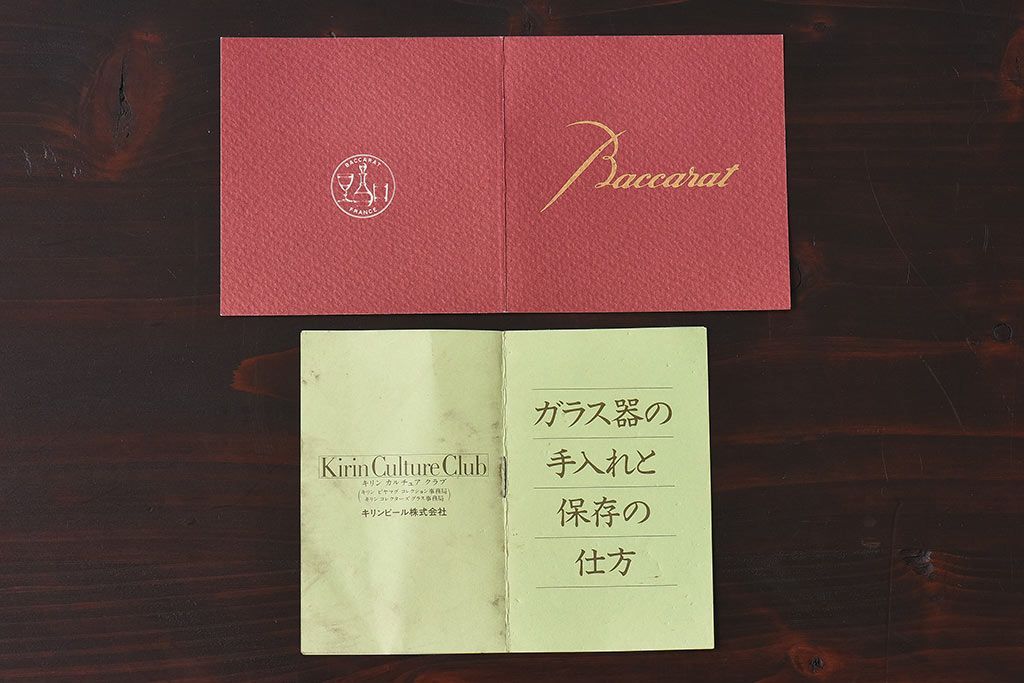 BACCARAT
FRANCE
Baccarat
Kirin Culture Club
キリン カルチュア クラブ
(キリン ビヤマグ コレクション事務局
キリンコレクターズグラス事務局)
キリンビール株式会社
ガラス器の
手入れと
保存の
仕方